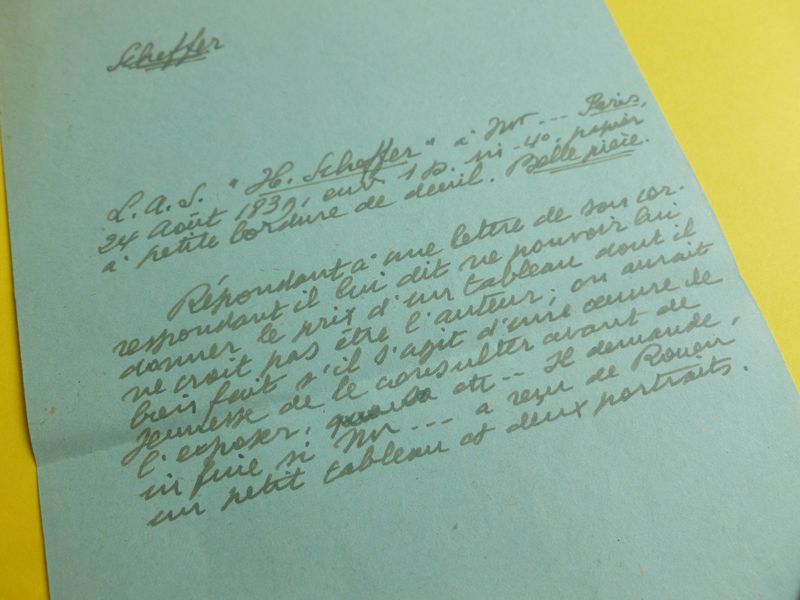 Scheffer
L. A. S. "H. Scheffer" à Mr --- Paris,
24 Août 1839, sur 1 p. in-4º, papier
à petite bordure de deuil. Belle pièce.
Répondant à une lettre de son cor-
respondant il lui dit ne pouvoir lui
donner le prix d'un tableau dont il
ne croit pas être l'auteur; on aurait
bien fait s'il s'agit d'une œuvre de
jeunesse de le consulter avant de
l'exposer, -- Il demande,
in fine si Mr --- a reçu de Rouen
un petit tableau et deux portraits.